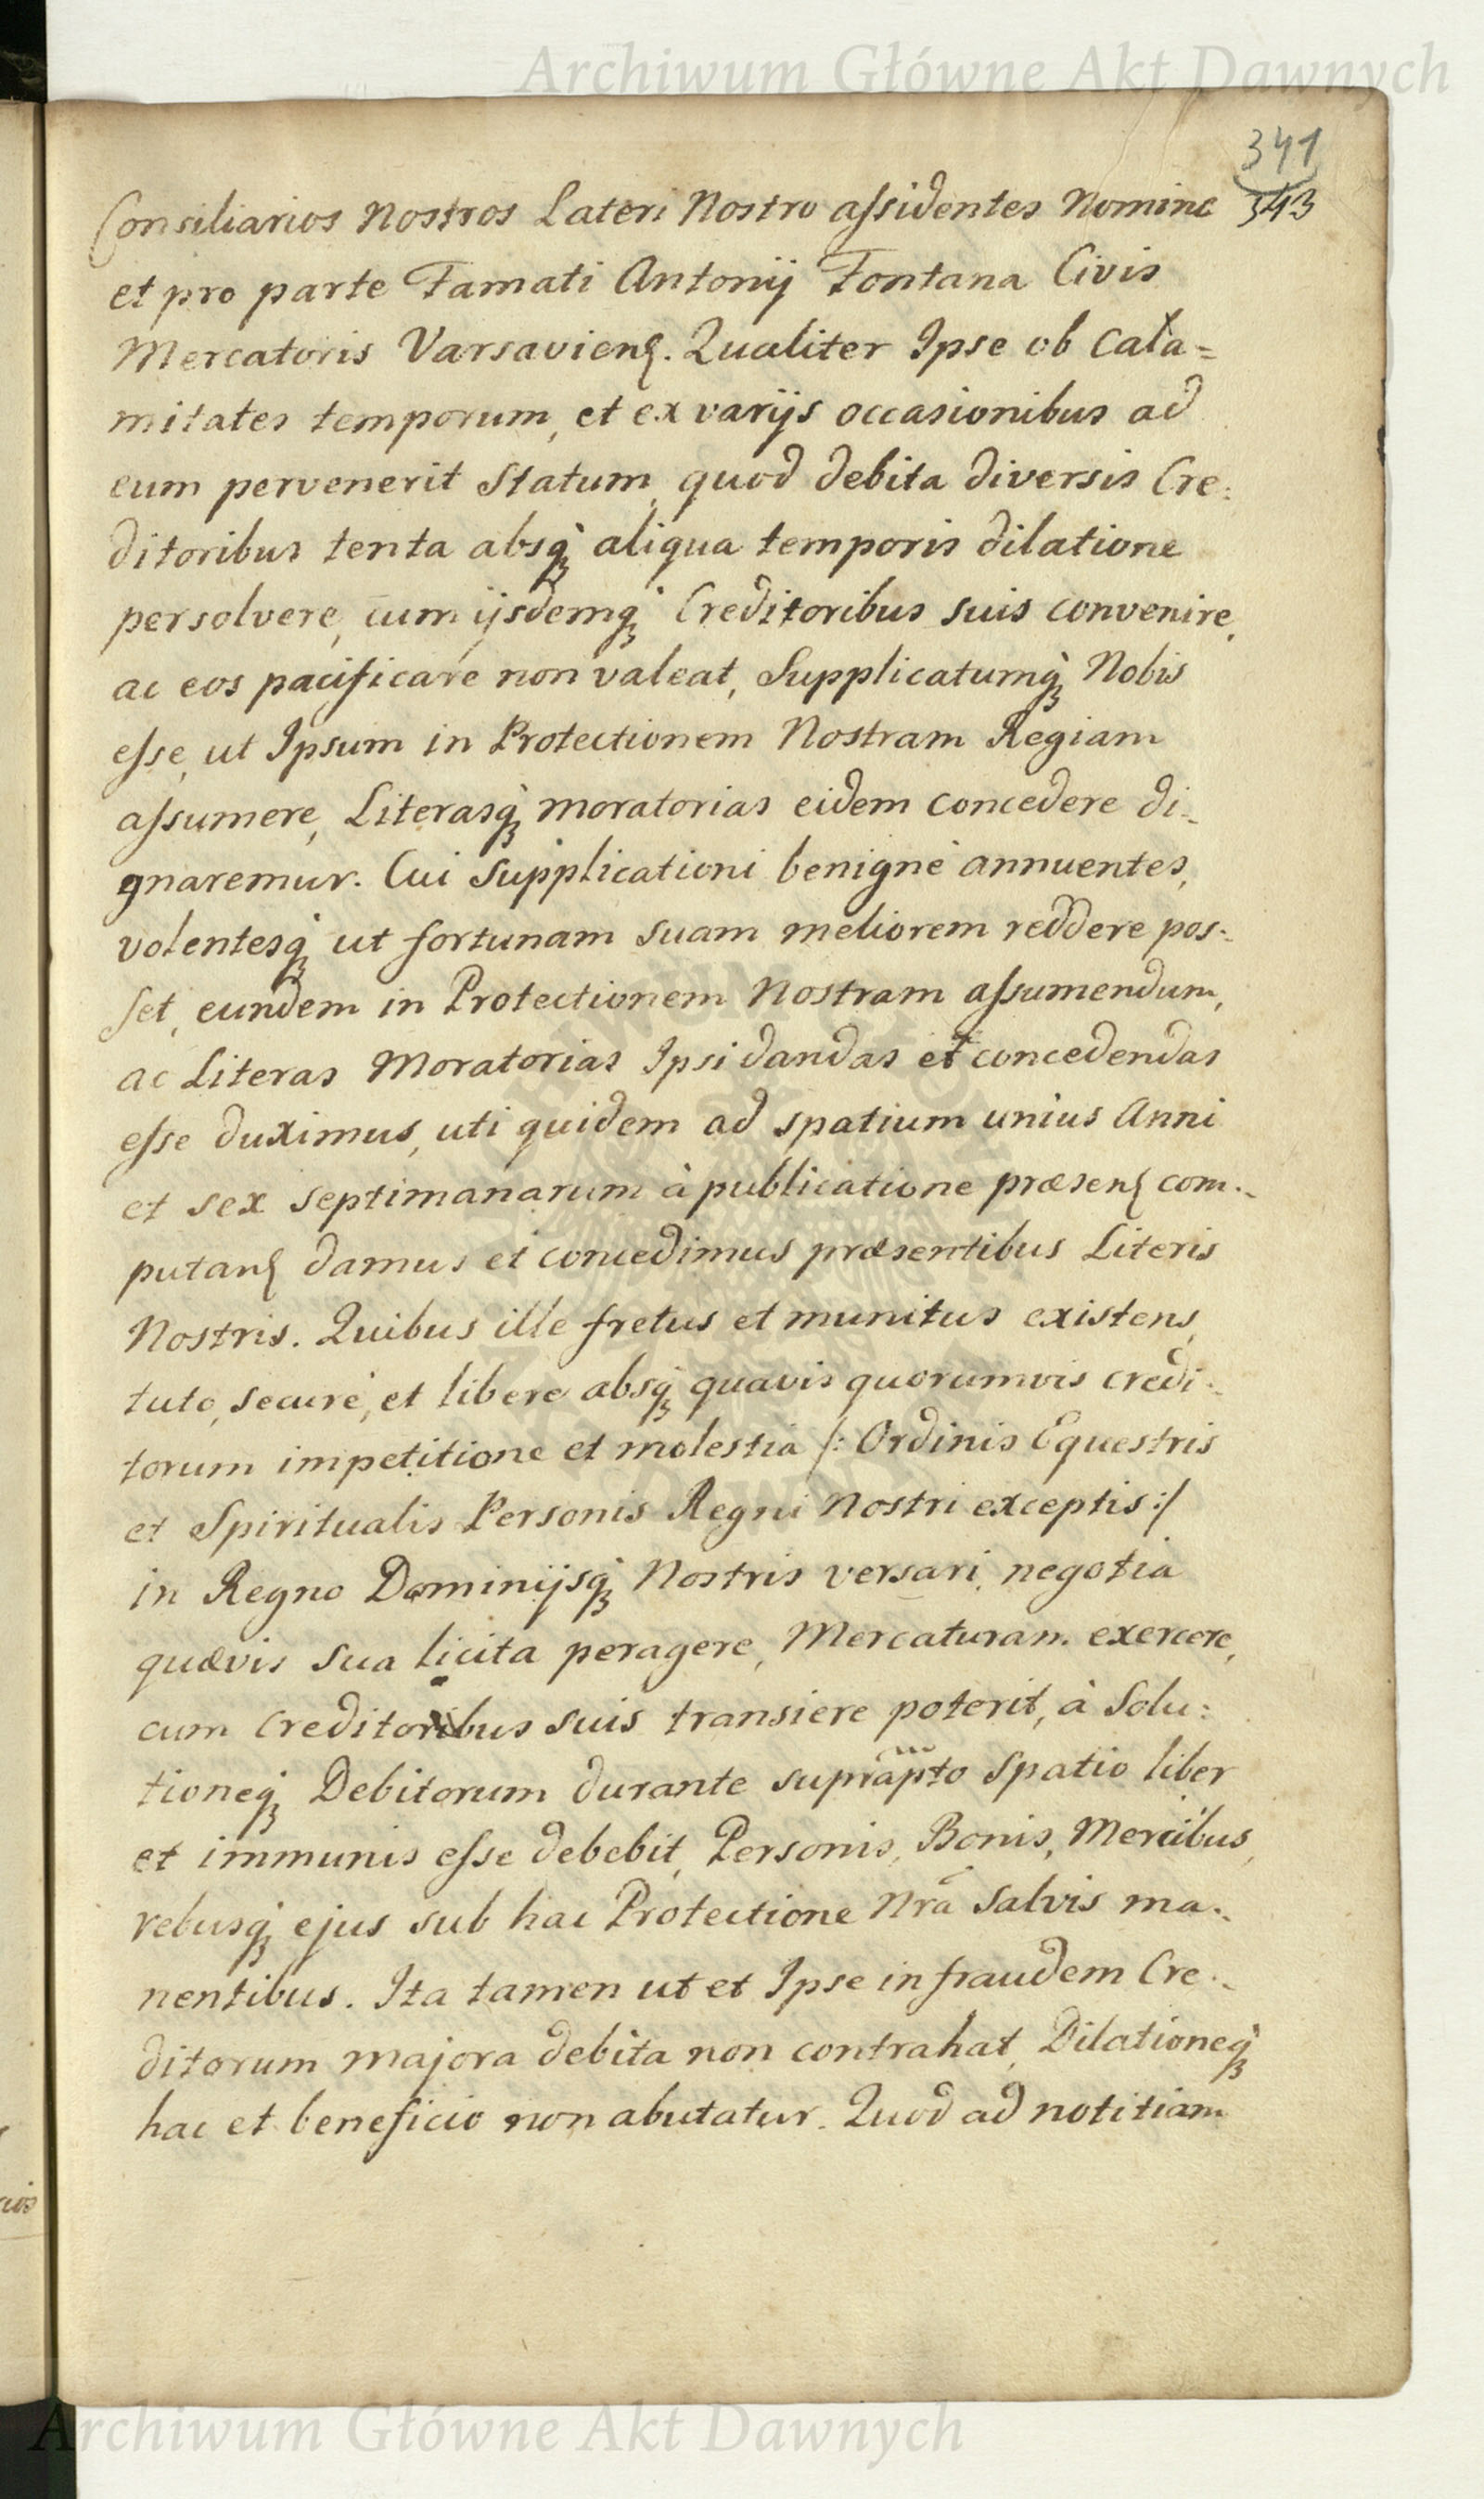 Archiwum Główne Akt Dawnych
341
343
Consiliarios Nostros Lateri Nostro assidentes Nomine
et pro parte Famati Antonij Fontana Civis
Mercatoris Varsaviens. Qualiter Ipse ob Cala=
mitates temporum, et ex varijs occasionibus ad
eum pervenerit Statum, quod debita diversis Cre:
ditoribus tenta absq̀ aliqua temporis dilatione
persolvere, cum ijsdemq̀ Creditoribus suis convenire,
ac eos pacificare non valeat, Supplicatumq̀ Nobis
esse, ut Ipsum in Protectionem Nostram Regiam
assumere, Literasq̀ moratorias eidem concedere di-
gnaremur. Cui Supplicationi benignè annuentes,
volentesq̀ ut fortunam suam meliorem reddere pos:
set, eundem in Protectionem Nostram assumendum,
ac Literas Moratorias Ipsi dandas et concedendas
esse duximus, uti quidem ad spatium unius Anni
et sex septimanarum à publicatione præsens com:
putans damus et concedimus præsentibus Literis
Nostris. Quibus ille fretus et munitus existens,
tuto, securè, et libere absq̀ quavis quorumvis credi:
torum impetitione et molestia /: Ordinis Equestris
et Spiritualis Personis Regni Nostri exceptis :/
in Regno Dominijsq̀ Nostris versari, negotia
quævis sua licita peragere, Mercaturam exercere,
cum Creditoribus suis transiere poterit, à Solu:
tioneq̀ Debitorum durante suprapto Spatio liber
et immunis esse debebit, Personis, Bonis, Mercibus,
rebusq̀ ejus sub hac Protectione Nrã Salvis ma:
nentibus. Ita tamen ut et Ipse in fraudem Cre:
ditorum majora debita non contrahat, Dilationeq̀
hac et beneficio non abutatur. Quod ad notitiam
Archiwum Główne Akt Dawnych